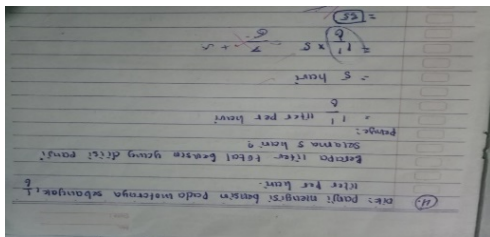 4. Dik: Panji mengisi bensin pada motornya sebanyak 1 1/6
liter per hari.
Berapa liter total bensin yang diisi Panji
selama 5 hari?
Penye:
= 1 1/6 liter per hari
= 5 hari
= 1 1/6 × 5 = 7/6 + 5
= 55